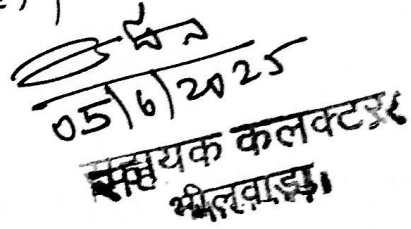 05/6/2025
सहायक कलक्टर
भीलवाड़ा